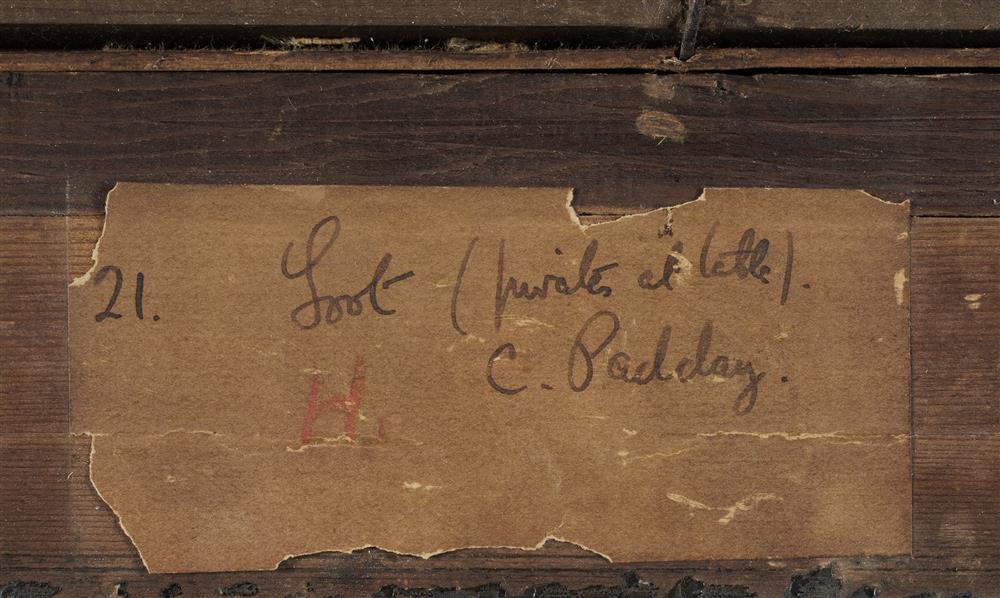 21. Loot (pirates at table).
C. Padday.
H.